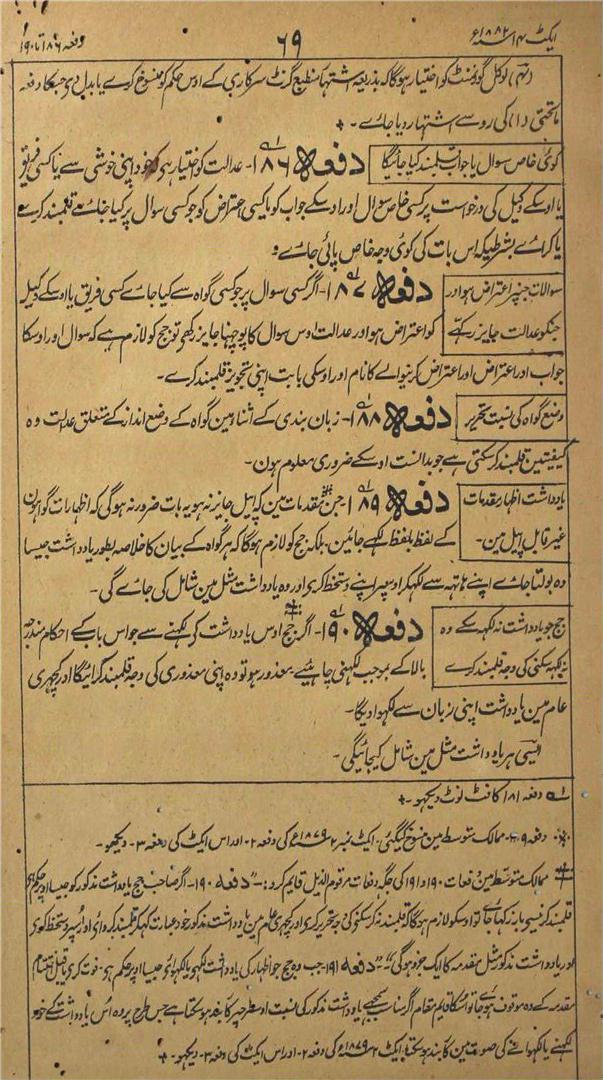 ایکٹ ۱۴ سنہ ۱۸۸۲ء
۶۹
دفعہ ۱۸۶ تا ۱۹۰
(۳) لوکل گورنمنٹ کو اختیار ہوگا کہ بذریعہ اشتہار مطبع گزٹ سرکاری کے اوس حکم کو منسوخ کرے یا بدل دی جسکا دفعہ
ماتحتی (۱) کی رو سے اشتہار دیا جائے۔
کوئی خاص سوال یا جواب قلمبند کیا جائیگا
دفعہ ۱۸۶۔ عدالت کو اختیار ہی کہ خود اپنی خوشی سے یا کسی فریق
یا اوسکے وکیل کی درخواست پر کسی خاص سوال اور اوسکے جواب کو یا کسی اعتراض کو جو کسی سوال پر کیا جائے قلمبند کرے
یا کرائے بشرطیکہ اس بات کی کوئی وجہ خاص پائی جائے۔
سوالات جنپر اعتراض ہو اور
جنکو عدالت جایز رکھے
دفعہ ۱۸۷۔ اگر کسی سوال پر جو کسی گواہ سے کیا جائے کسی فریق یا اوسکے وکیل
کو اعتراض ہو اور عدالت اوس سوال کا پوچھنا جایز رکھی تو جج کو لازم ہے کہ سوال اور اوسکا
جواب اور اعتراض اور اعتراض کرنیوالے کا نام اور اوسکی بابت اپنی تجویز قلمبند کرے۔
وضع گواہ کی نسبت تحریر
دفعہ ۱۸۸۔ زبان بندی کے اثنا مین گواہ کے وضع انداز کے متعلق عدالت وہ
کیفیتین قلمبند کرسکتی ہے جو بدانست اوسکے ضروری معلوم ہون۔
یادداشت اظہار بمقدمات
غیر قابل اپیل مین۔
دفعہ ۱۸۹۔ جن مقدمات مین کہ اپیل جایز نہ ہو یہ بات ضرور نہ ہوگی کہ اظہارات گواہون
کے لفظ بلفظ لکھے جائین۔ بلکہ جج کو لازم ہوگا کہ ہر گواہ کے بیان کا خلاصہ بطور یادداشت جیسا
وہ بولتا جائے اپنے ہاتھہ سے لکھکر اوسپر اپنے دستخط کری اور وہ یادداشت مثل مین شامل کی جائے گی۔
جج جو یادداشت نہ لکھہ سکے وہ
نہ لکھہ سکنی کی وجہ قلمبند کرے
دفعہ ۱۹۰۔ اگر جج اوس یادداشت کی لکھنے سے جو اس باب کے احکام مندرجہ
بالا کے بموجب لکھنی چاہئیے۔ معذور ہو تو وہ اپنی معذوری کی وجہ قلمبند کرائیگا اور کچہری
عام مین یادداشت اپنی زبان سے لکھوا دیگا۔
ایسی ہر یادداشت مثل مین شامل کیجائیگی۔
دفعہ ۱۸۱ کا فٹ نوٹ دیکھو۔
دفعہ ۱۸۹۔ ممالک متوسط مین منسوخ کیگئی۔ ایکٹ نمبر ۲ سنہ ۱۸۷۹ء کی دفعہ ۲۔ اور اس ایکٹ کی دفعہ ۳۔ دیکھو۔
ممالک متوسط مین دفعات ۱۹۰ و ۱۹۱ کی جگہ دفعات مرقوم الذیل قایم کرو:۔ ”دفعہ ۱۹۰۔ اگر صاحب جج یادداشت مذکور کو جیسا اوپر حکم ہی
قلمبند کرنیسی باز رکھا جائے تو اوسکو لازم ہوگا کہ قلمبند نہ کرسکنی کی وجہ تحریر کری اور کچہری عام مین یادداشت مذکور خود عبارت کہکر قلمبند کروائی اور اوسپر دستخط کری
اور یادداشت مذکور مثل مقدمہ کا ایک جزو ہوگی“۔ ”دفعہ ۱۹۱۔ جب وہ جج جو اظہار کی یادداشت لکھی یا لکھوائی جیسا اوپر حکم ہی۔ فوت کری یا قبل اختتام
مقدمہ کے وہ موقوف ہو جائے تو اسکا قایم مقام اگر مناسب سمجھے یادداشت مذکور کی نسبت اوسطرحپر کاربند ہو سکتا ہے جس طرح پر وہ اس یادداشت کے خود
لکھنے یا لکھوانے کی صورت مین کاربند ہو سکتا۔ ایکٹ ۲ سنہ ۱۸۷۹ء کی دفعہ ۲۔ اور اس ایکٹ کی دفعہ ۳۔ دیکھو۔